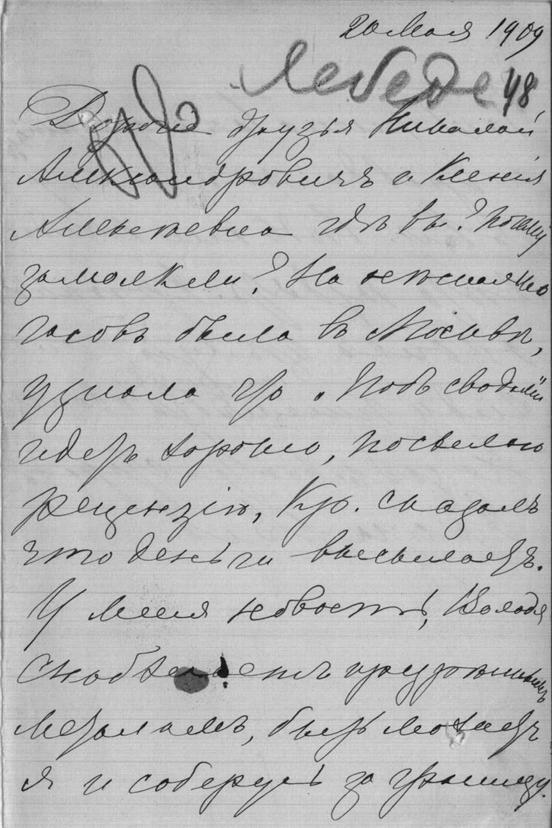 20 Мая 1909
Лебеде 48
Дорогие друзья Николай
Александровичъ и Ксенія
Алексѣевна гдѣ вы? Почему
замолкли? На нѣсколько
часовъ была въ Москвѣ,
узнала что „Подъ сводами"
идетъ хорошо, посылаю
рецензію, Кр. сказалъ
что деньги высылаетъ.
У меня новость, Володя
металламъ, быть можетъ
я и соберусь за границу.